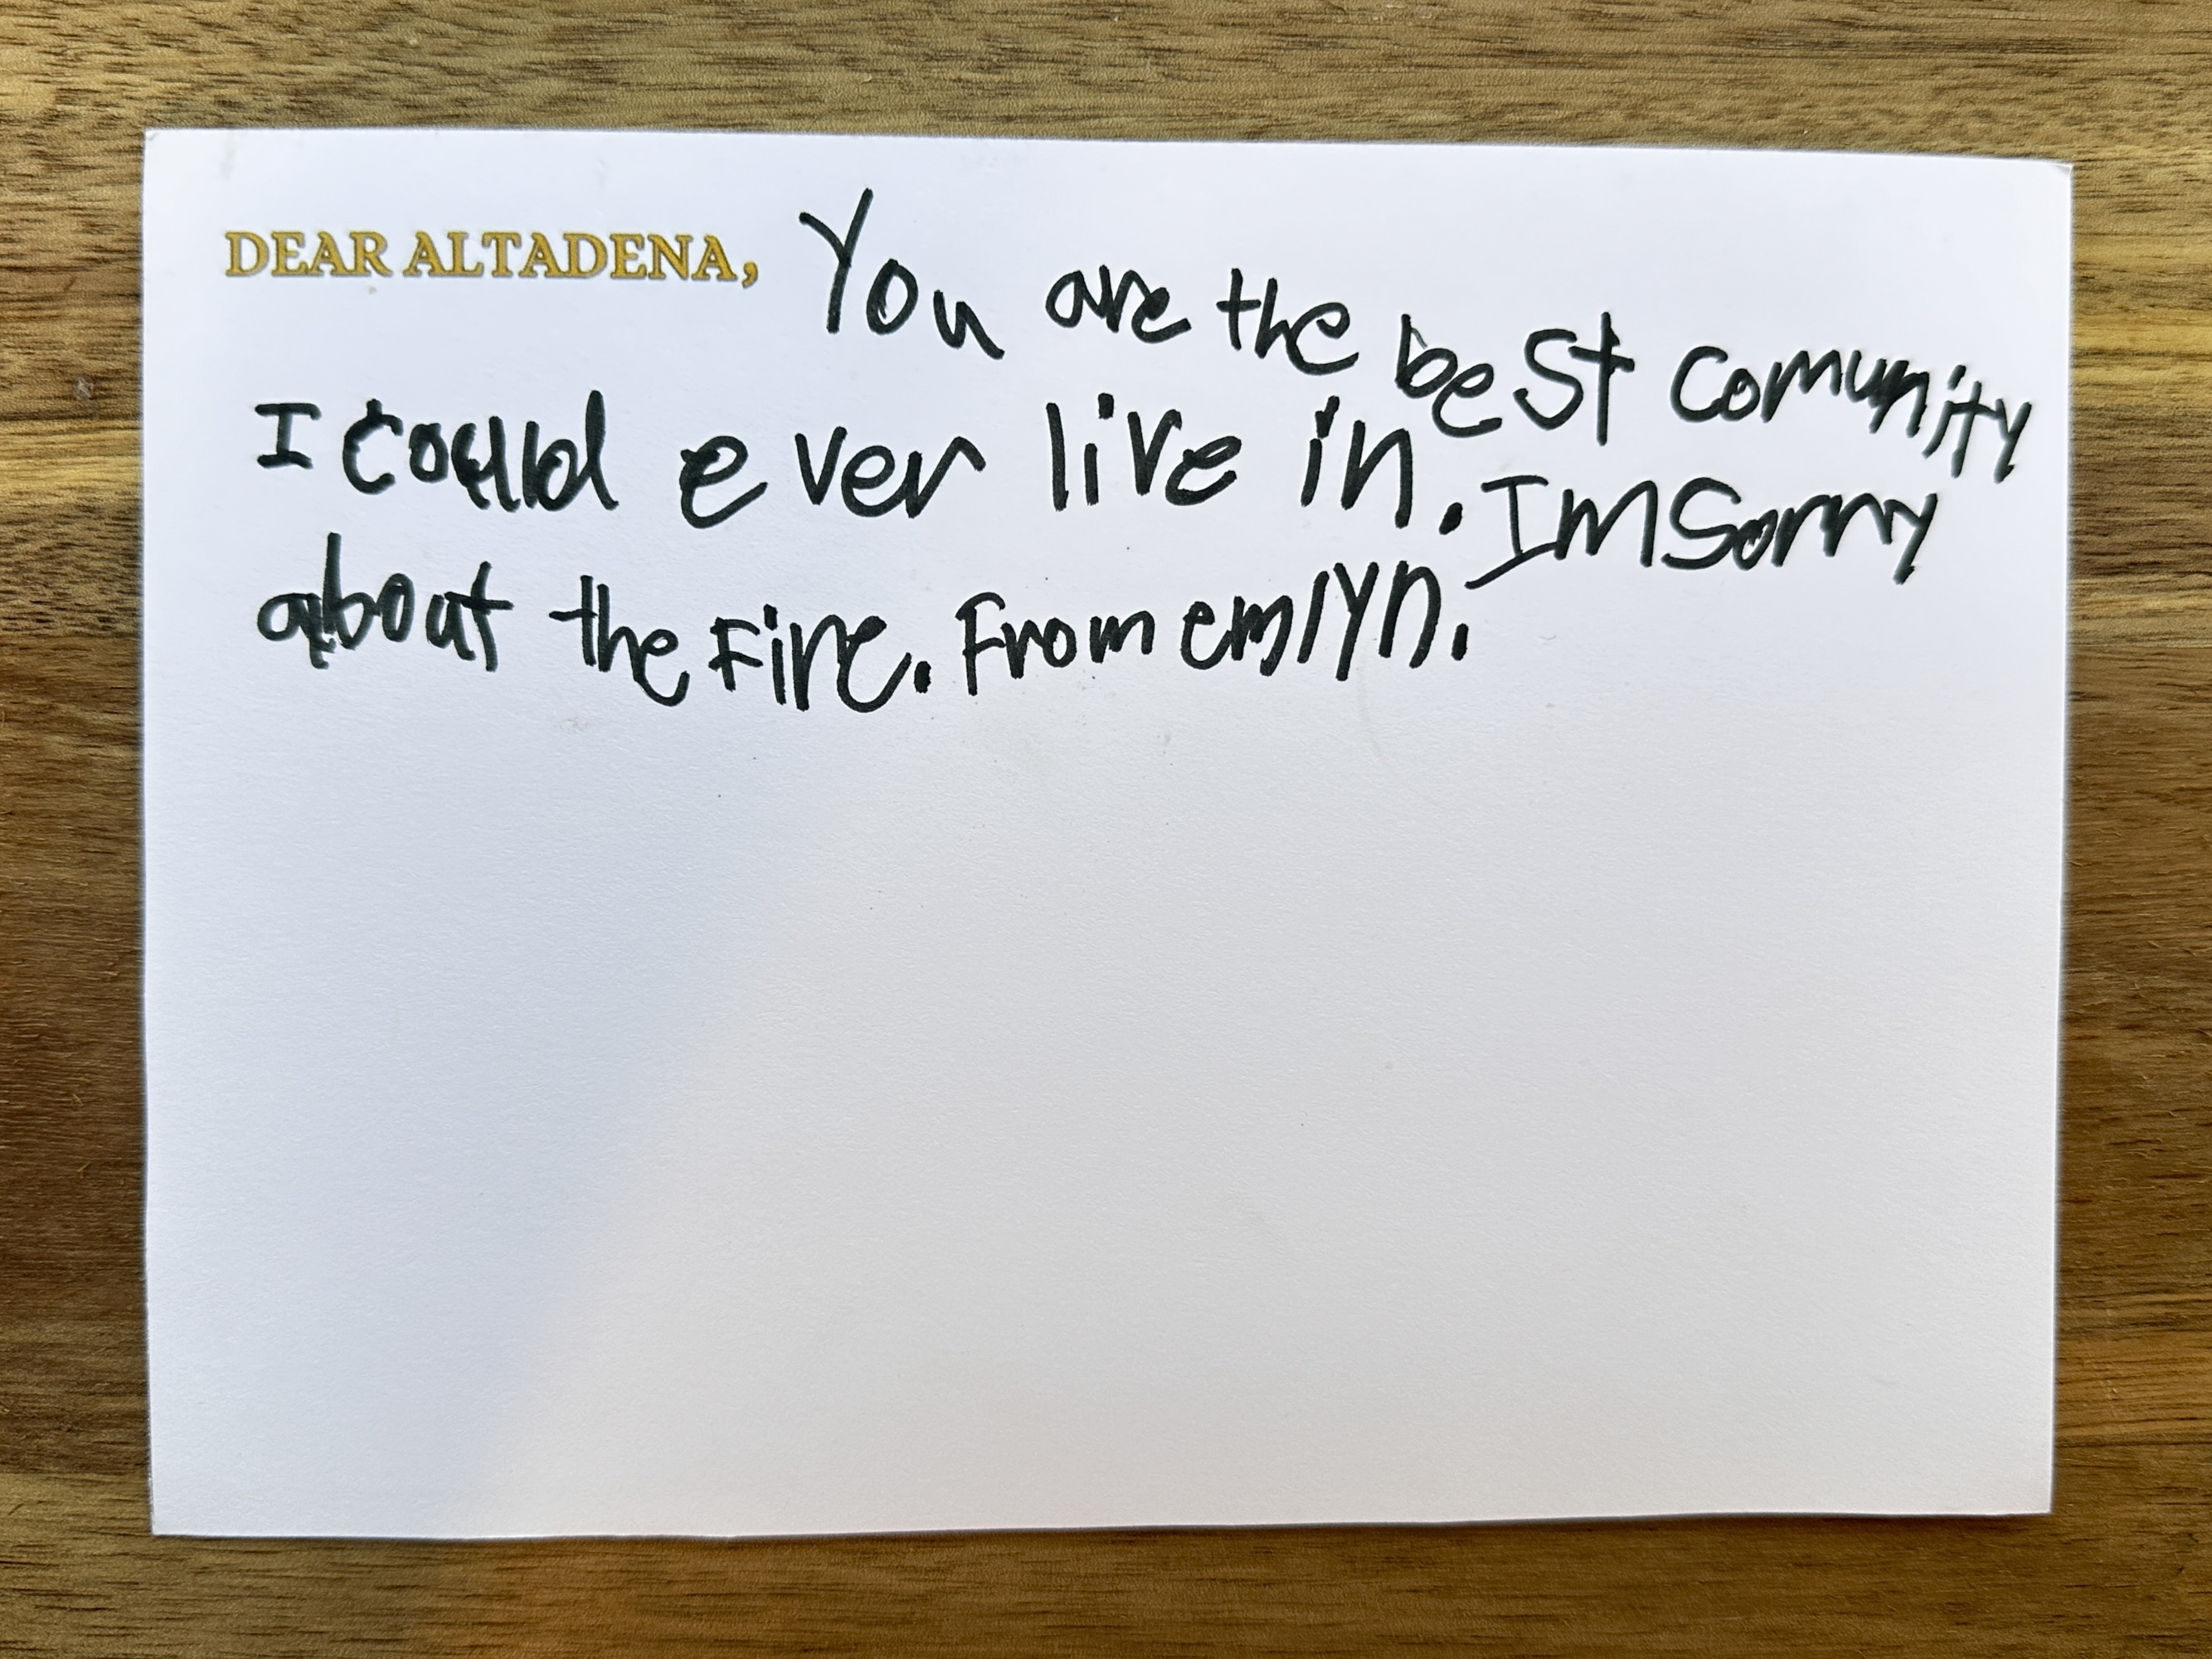 DEAR ALTADENA, You are the best comunity
I could ever live in. Im Sorry
about the Fire. From emlyn.